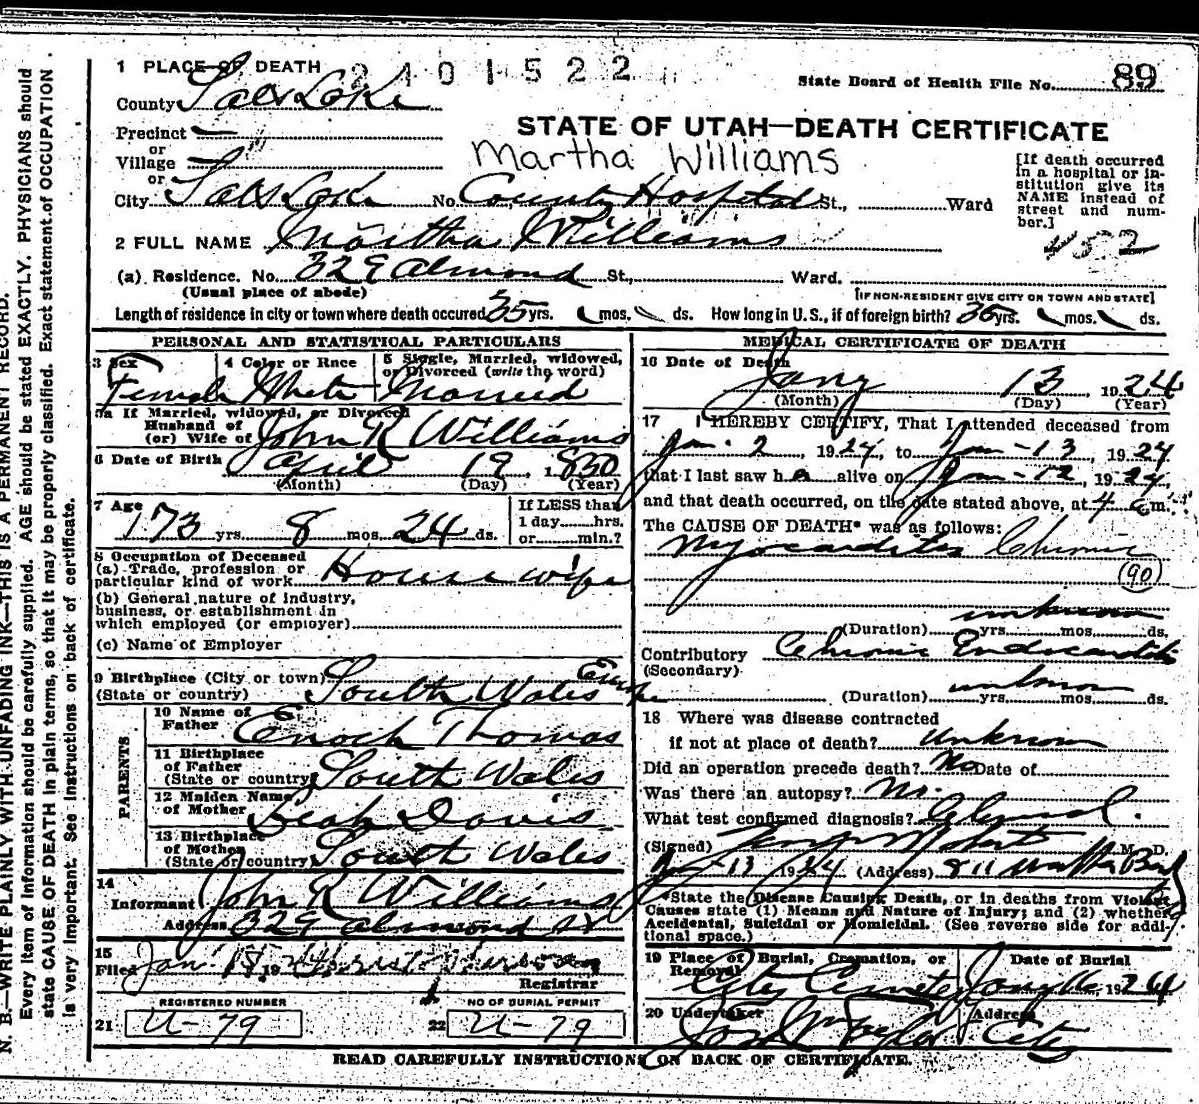 N. B.—WRITE PLAINLY WITH UNFADING INK—THIS IS A PERMANENT RECORD.
Every item of information should be carefully supplied. AGE should be stated EXACTLY. PHYSICIANS should
state CAUSE OF DEATH in plain terms, so that it may be properly classified. Exact statement of OCCUPATION
is very important. See instructions on back of certificate.
1 PLACE OF DEATH 2401522
State Board of Health File No. 89
County Salt Lake
STATE OF UTAH—DEATH CERTIFICATE
Precinct —
or
Village
Martha Williams
[If death occurred
in a hospital or in-
stitution give its
NAME instead of
street and num-
ber.]
or
City Salt Lake No. County Hospital St., Ward
2 FULL NAME Martha Williams
452
(a) Residence. No. 329 Almond St., Ward.
(Usual place of abode)
[IF NON-RESIDENT GIVE CITY OR TOWN AND STATE]
Length of residence in city or town where death occured 35 yrs. mos. ds. How long in U. S., if of foreign birth? 35 yrs. mos. ds.
PERSONAL AND STATISTICAL PARTICULARS
3 Sex 4 Color or Race 5 Single, Married, widowed,
or Divorced (write the word)
Female White Married
5a If Married, widowed, or Divorced
Husband of
(or) Wife of John R Williams
6 Date of Birth April 19 1850
(Month) (Day) (Year)
7 Age 73 yrs 8 mos. 24 ds.
If LESS than
1 day hrs.
or min.?
8 Occupation of Deceased
(a) Trade, profession or
particular kind of work Housewife
(b) General nature of industry,
business, or establishment in
which employed (or employer)
(c) Name of Employer
9 Birthplace (City or town)
(State or country) South Wales Europe
PARENTS
10 Name of
Father Enoch Thomas
11 Birthplace
of Father
(State or country) South Wales
12 Maiden Name
of Mother Leah Davis
13 Birthplace
of Mother
(State or country) South Wales
14
Informant John R Williams
Address 329 Almond St
15
Filed Jan 15 1924
Registrar
REGISTERED NUMBER NO OF BURIAL PERMIT
21 U-79 22 U-79
MEDICAL CERTIFICATE OF DEATH
16 Date of Death Jany 13 1924
(Month) (Day) (Year)
17 I HEREBY CERTIFY, That I attended deceased from
Jan. 2, 1924, to Jan-13, 1924
that I last saw her alive on Jan-12, 1924,
and that death occurred, on the date stated above, at 4 m.
The CAUSE OF DEATH* was as follows:
Myocarditis Chronic
(90)
unknown
(Duration) yrs. mos. ds.
Contributory Chronic Endocarditis
(Secondary)
unknown
(Duration) yrs. mos. ds.
18 Where was disease contracted
if not at place of death? Unknown
Did an operation precede death? No Date of
Was there an autopsy? No.
What test confirmed diagnosis? Clinical.
(Signed) M. D.
Jan-13 1924 (Address) 811
*State the Disease Causing Death, or in deaths from Violent
Causes state (1) Means and Nature of Injury; and (2) whether
Accidental, Suicidal or Homicidal. (See reverse side for addi-
tional space.)
19 Place of Burial, Cremation, or
Removal
Date of Burial
City Cemetery Jany 16, 1924
20 Undertaker Address
Jos Wm Taylor City
READ CAREFULLY INSTRUCTIONS ON BACK OF CERTIFICATE.